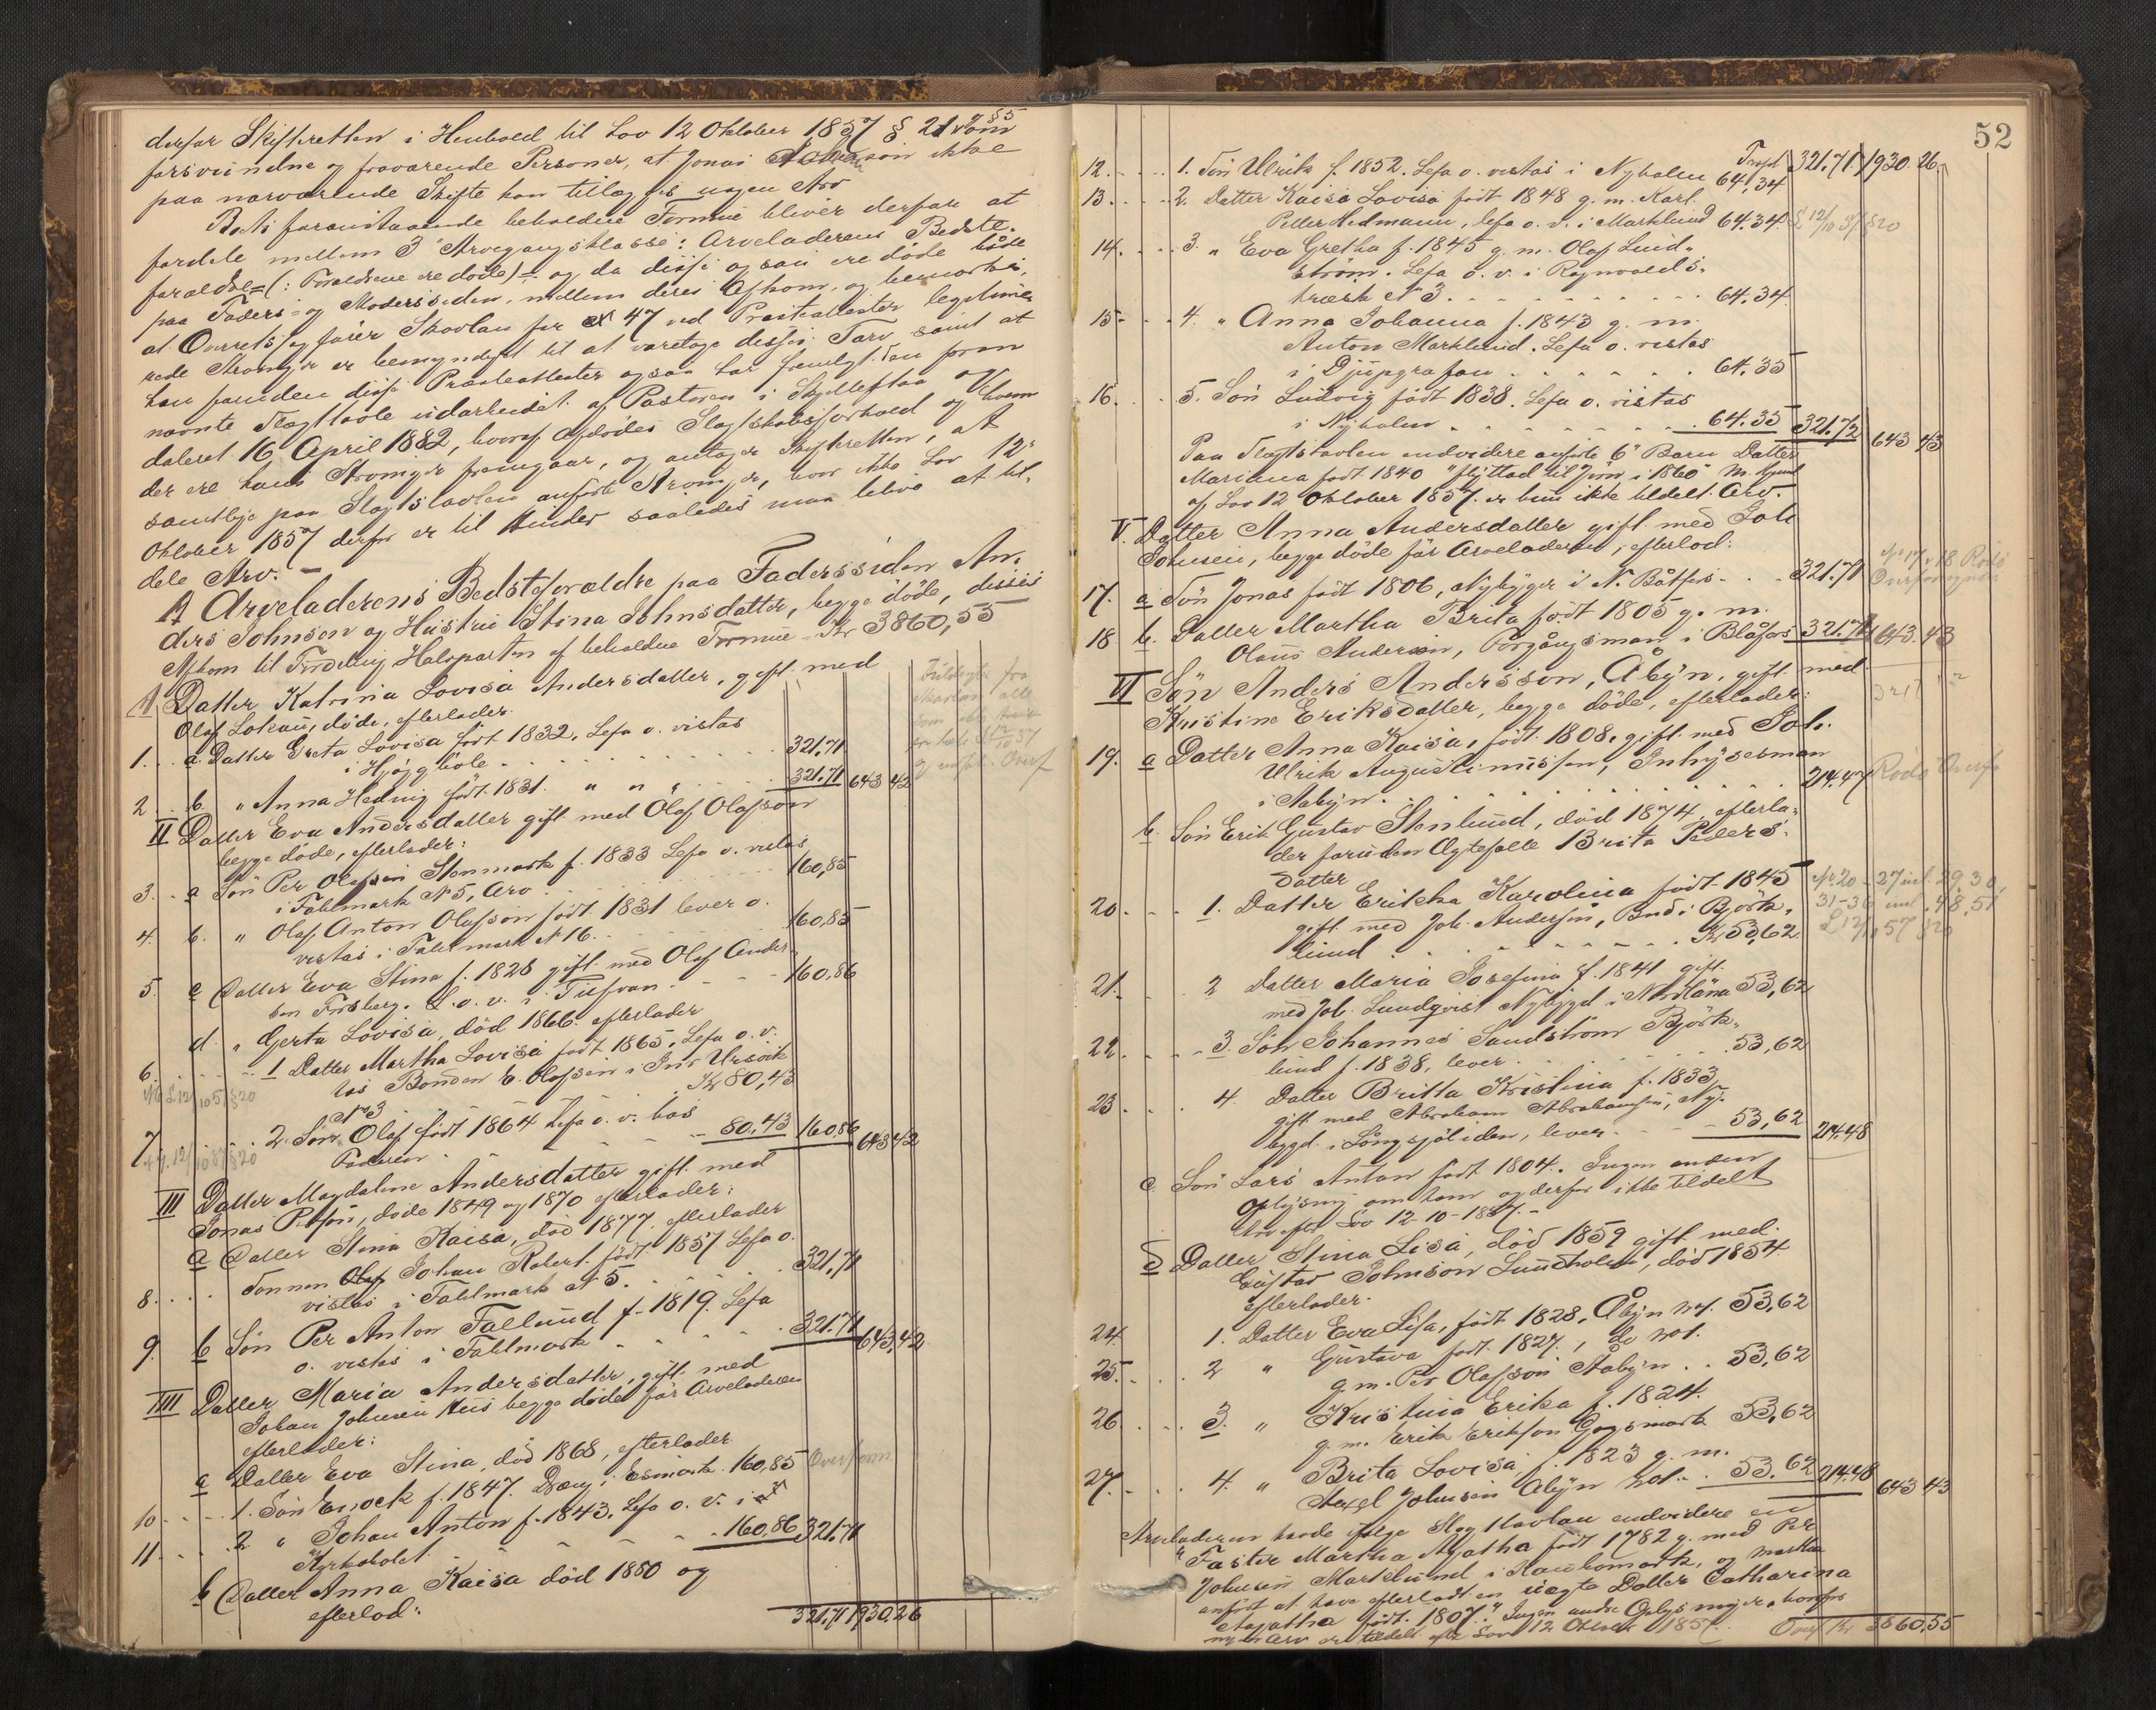 derfor Skifteretten i Henhold til Lov 12 Oktober 1857 § 21 som § 5
forsvundne og fraværende Personer, at Jonas ikke
paa nærværende Skifte kan tillægges nogen Arv
foranstaaende beholdne Formue bliver derfor at
fordele mellem 3die Arvegangsklasse: Arveladerens Bedste-
forældre (: Forældrene ere døde) og da disse ogsaa ere døde både
paa Faders- og Modersiden, mellem deres Afkom, og bemærkes,
at Overretssagfører Skavlan for 47 ved Præsteattester legitime-
rede Arvinger er bemyndiget til at varetage disses Tarv samt at
han foruden disse Præsteattester ogsaa har fremlagt en
nævnte Slægttavle udarbeidet af Pastoren i Skjellefteaa og
dateret 16 April 1882, hvoraf Afdødes Slægtskabsforhold og hvem
der ere hans Arvinger fremgaar, og antager Skifteretten, at
samtlige paa Slægtstavlen anførte Arvinger, hvor ikke Lov 12te
Oktober 1857 derfor er til Hinder saaledes maa blive at til-
dele Arv. —
A Arveladerens Bedsteforældre paa Faderssiden An-
ders Johnson og Hustru Stina Johnsdatter, begge døde, disses
Afkom til Fordeling Halvparten af beholdne Formue Kr 3860,55
I Datter Katrina Lovisa Andersdatter, gift med
Olof døde, efterlader
1. a Datter Greta Lovisa født 1832, Lefa o. vistas
i Hjoggböle 321.71
2 b. " Anna Hedvig født 1831. " " " 321.71 643 42
II Datter Eva Andersdatter gift med Olof Olofson
begge døde, efterlader:
3. a Søn Per Olofson Stenmark f. 1833 Lefa o. vistas
i Fahlmark N 5, Arv 160,85
4. b. " Olof Anton Olofson født 1831 lever o.
vistas i Fahlmark N 16. 160,85
5. c Datter Eva Stina f. 1828 gift med Olof Ander-
sen Forsberg. L. o. v. i 160,86
d. " Gerta Lovisa, død 1866 efterlader
6. 1 Datter Martha Lovisa født 1865, Lefa o. v.
hos Bonden E. Olofson i Innr Ursvik
N 3 Kr 80,43
7 2. Søn Olof født 1864 Lefa o. v. hos
Faderen 80.43 160,86 643 42
III Datter Magdalene Andersdatter gift med
Jonas døde 1849 og 1870 efterlader:
a Datter Stina Kaisa, død 1877 efterlader
8. Sønnen Johan Robert født 1857 Lefa o.
vistas i Fahlmark N 5. 321.71
9. b Søn Per Anton Fallund f. 1819. Lefa
o. vistas i Fahlmark 321.71 643,42
IIII Datter Maria Andersdatter, gift med
Johan Johnsen begge døde før Arveladeren
efterlader:
a Datter Eva Stina, død 1868, efterlader
10 1. Søn Enock f. 1847. Dreng i 160,85
11 2 " Johan Anton f. 1843. Lefa o. v. i
160.86 321.71
b Datter Anna Kaisa død 1880 og
efterlod:
321.71 1930.26
52
Trspt 321.71 1930.26.
12. 1. Søn Ulrik f. 1852. Lefa o. vistas i Nyholm 64.34
13 2. Datter Kaisa Lovisa født 1848 g. m. Karl
Petter Hedmann, lefa o. v. i Marklund 64.34. L 12/10 57 § 20
14. 3. " Eva Gretha f. 1845 g. m. Olof Lind-
ström. Lefa o. v. i Ragnvalds-
træsk N 3. 64.34
15 4. " Anna Johanna f. 1843 g. m.
Anton Marklund. Lefa o. vistas
i Djupgrafan 64.35
16. 5. Søn Ludvig født 1838. Lefa o. vistas
i Nyholm 64.35 321.72 643 43
Paa Slægtstavlen endvidere anførte 6te Barn Datter
Marianna født 1840 "flyttad til Jörn i 1860"
af Lov 12 Oktober 1857. er hun ikke tildelt Arv.
V. Datter Anna Andersdatter gift med Joh
Johnsen, begge døde før Arveladeren, efterlod:
17. a Søn Jonas født 1806, Nybygger i N. Båtfors 321.71
18 b. Datter Martha Brita født 1805 g. m.
Olaus Andersen, Förgångsman i Blåfors 321.72 643.43
VI Søn Anders Andersson, Åbyn, gift med
Kristine Eriksdatter, begge døde, efterlader:
19. a Datter Anna Kaisa, født 1808, gift med Joh.
Ulrik Augustinussen, Inhysesman
i Aabyn. 214.47
b. Søn Erik Gustav Stenlund, død 1874, efterla-
der foruden Ægtefælle Brita Peders-
datter
20. 1. Datter Erikha Karolina født 1845
gift med Joh. Andersen, Bnd i Björk-
lund Kr 53,62
21. 2 Datter Maria Josefina f. 1841 gift
med Joh. Lundqvist Nybygd i 53,62
22. 3. Søn Johannes Sandström Björk-
lund f. 1838, lever 53,62
23 4. Datter Britta Kristina f. 1833
gift med Abraham Abrahamsen, Ny-
bygd i Långsjöliden, lever 53,62 214.48
c. Søn Lars Anton født 1804. Ingen anden
Oplysning om ham og derfor ikke tildelt
Arv efter Lov 12-10-1857. -
d Datter Stina Lisa, død 1859 gift med
Gustav Johnson Lundholm, død 1854
efterlader.
24. 1. Datter Eva Lisa, født 1828, Åbyn No 1. 53,62
25. 2 " Gustava født 1827, do No 1.
g m. Per Olofson Aabyn 53,62
26. 3. " Kristina Erika f. 1824.
g. m. Erik Erikson Gagsmark 53,62
27. 4. " Brita Lovisa, f. 1823 g. m.
Axel Johnsen Abyn No 1. 53.62 214.48 643 43
Arveladeren havde ifølge Slægttavlen endvidere en
"Faster Martha Agatha født 1782 g. med Per
Johnsen Marklund i og Martha
anført at have efterladt en uægte Datter Catharina
Agatha født 1807." Ingen andre Oplysninger, hvorfor
ingen Arv er tildelt efter Lov 12 Oktober 1857. Overf Kr 3860,55